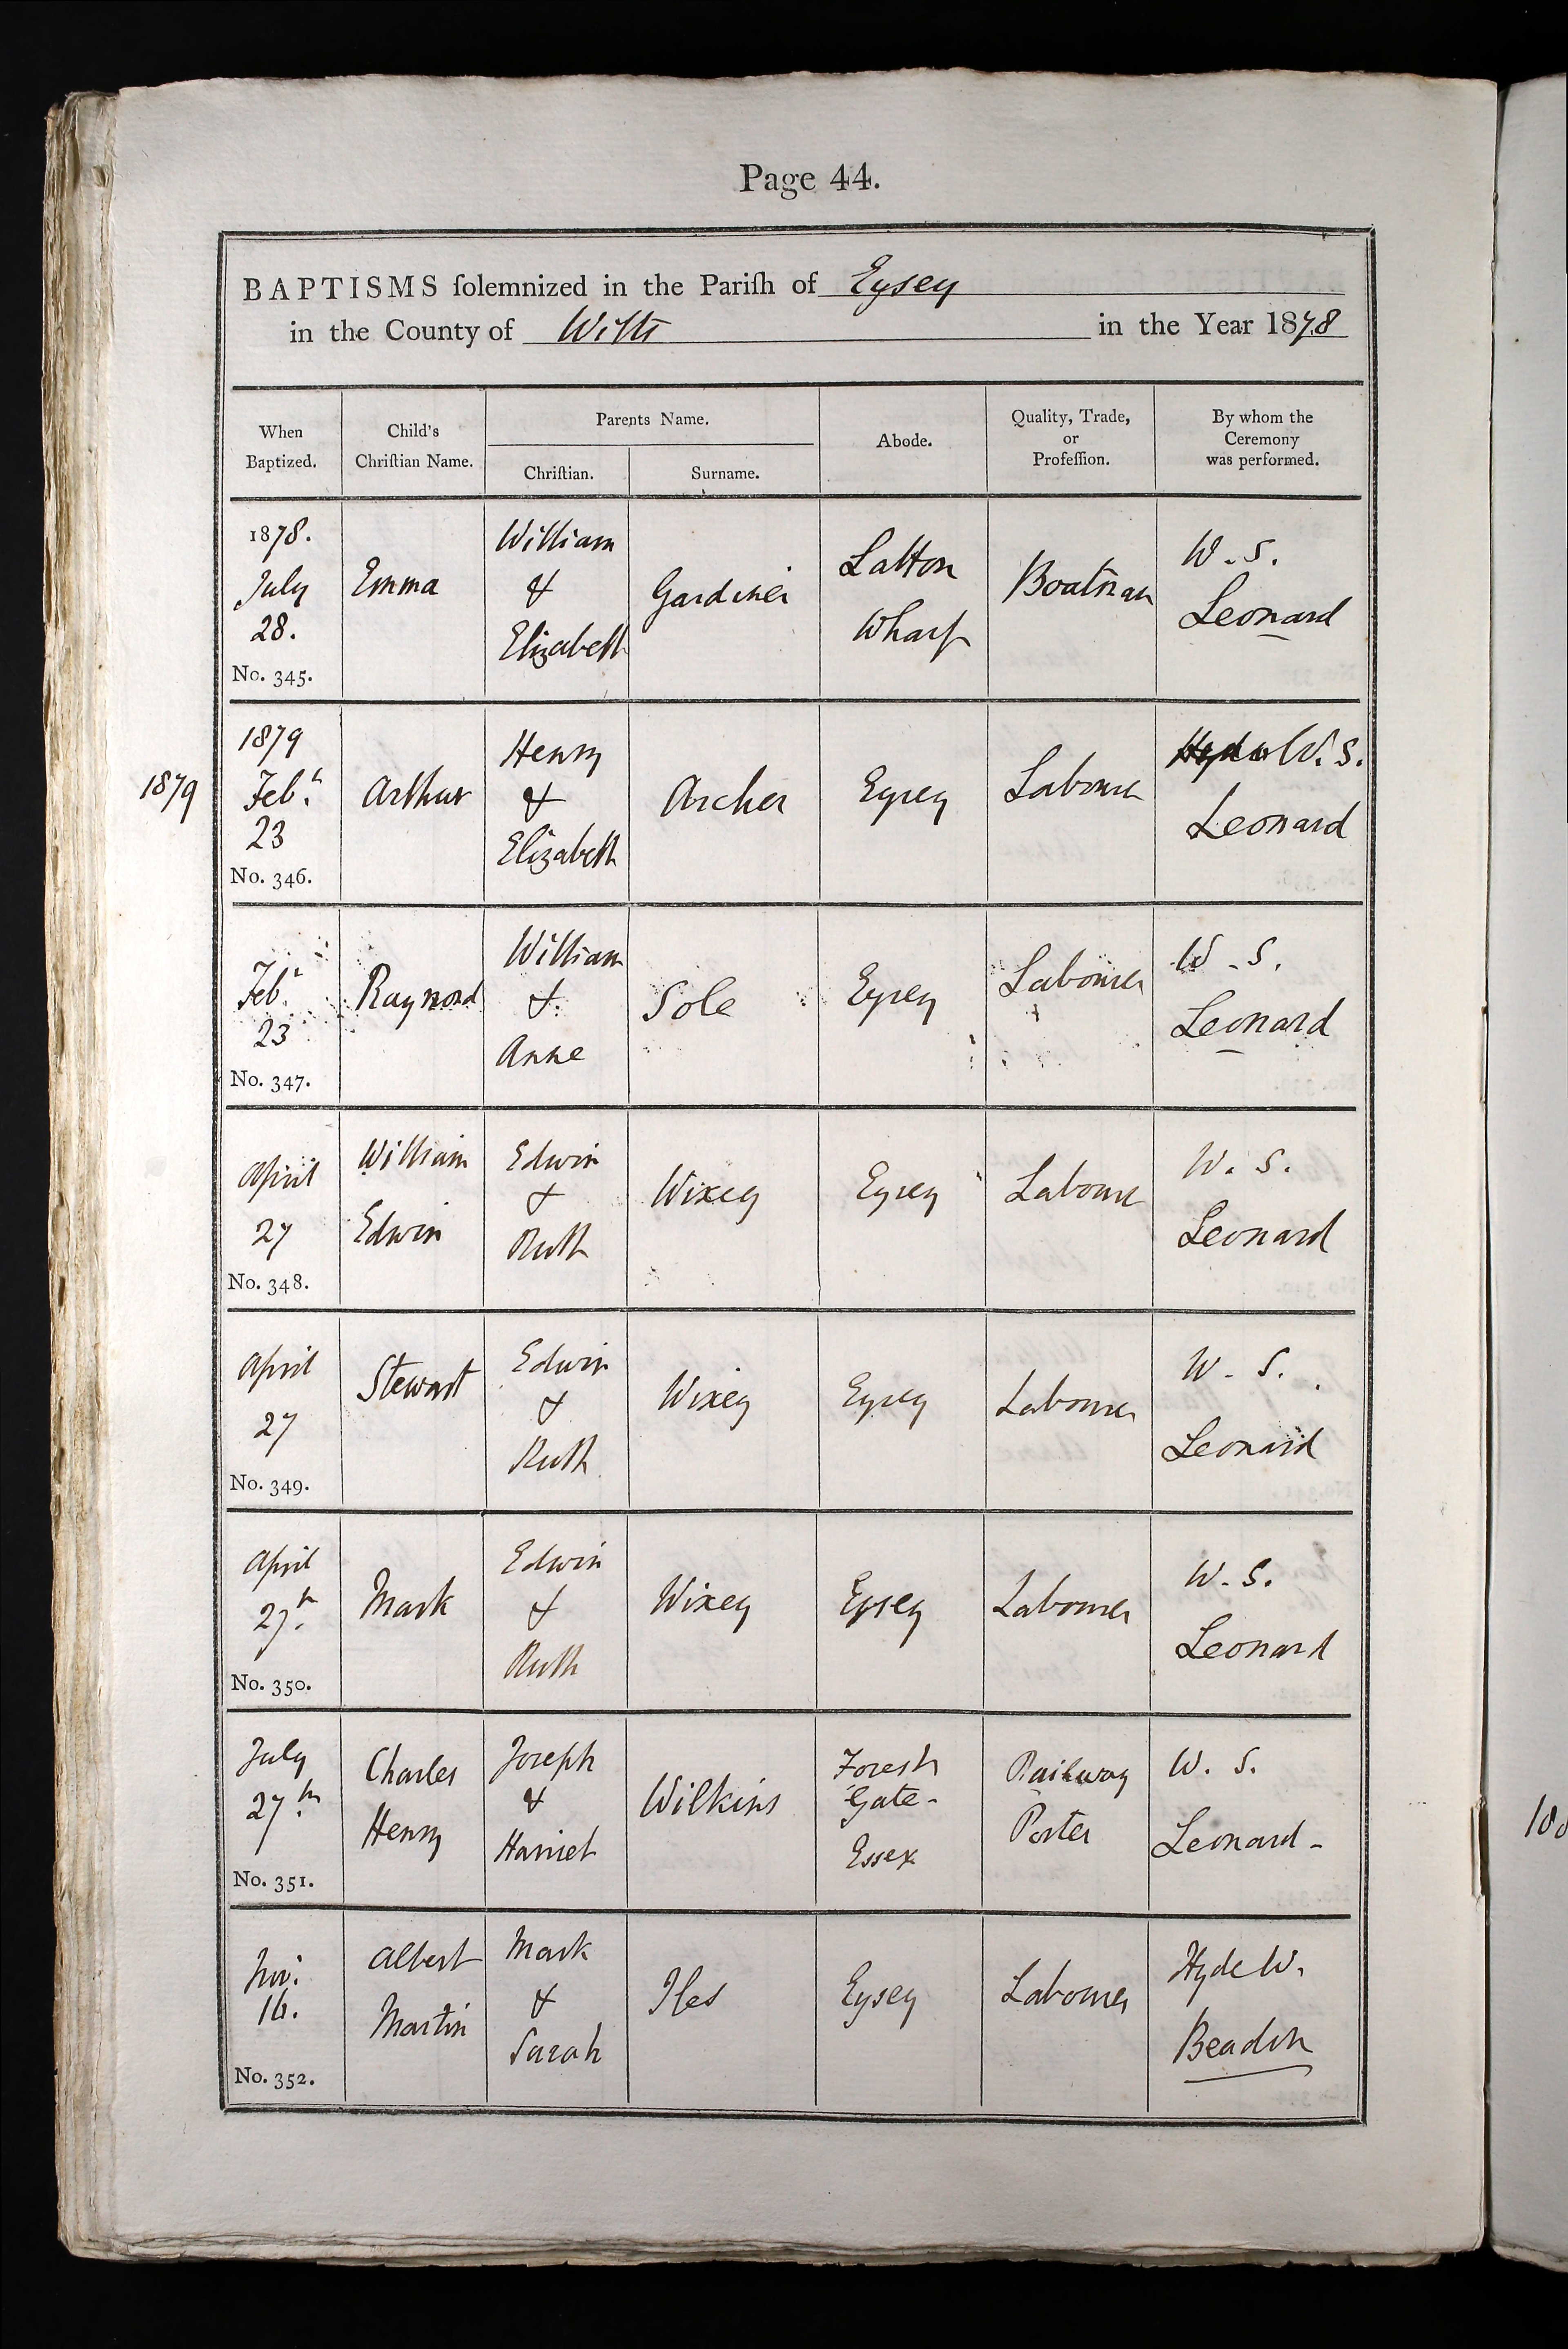 Page 44.
BAPTISMS ſolemnized in the Pariſh of Eysey
in the County of Wilts in the Year 1878
When Baptized.
Child's Chriſtian Name.
Parents Name.
Chriſtian.
Surname.
Abode.
Quality, Trade, or Profeſſion.
By whom the Ceremony was performed.
1878.
July
28.
No. 345.
Emma
William
&
Elizabeth
Gardiner
Latton
Wharf
Boatman
W. S.
Leonard
1879
1879
Feb.
23
No. 346.
Arthur
Henry
&
Elizabeth
Archer
Eysey
Labourer
Hyde W. S.
Leonard
Feb.
23
No. 347.
Raymond
William
&
Anne
Sole
Eysey
Labourer
W. S.
Leonard
April
27
No. 348.
William
Edwin
Edwin
&
Ruth
Wixey
Eysey
Labourer
W. S.
Leonard
April
27
No. 349.
Stewart
Edwin
&
Ruth
Wixey
Eysey
Labourer
W. S.
Leonard
April
27th
No. 350.
Mark
Edwin
&
Ruth
Wixey
Eysey
Labourer
W. S.
Leonard
July
27th
No. 351.
Charles
Henry
Joseph
&
Harriet
Wilkins
Forest
Gate-
Essex
Railway
Porter
W. S.
Leonard-
Nov.
16.
No. 352.
Albert
Martin
Mark
&
Sarah
Iles
Eysey
Labourer
Hyde W.
Beadon